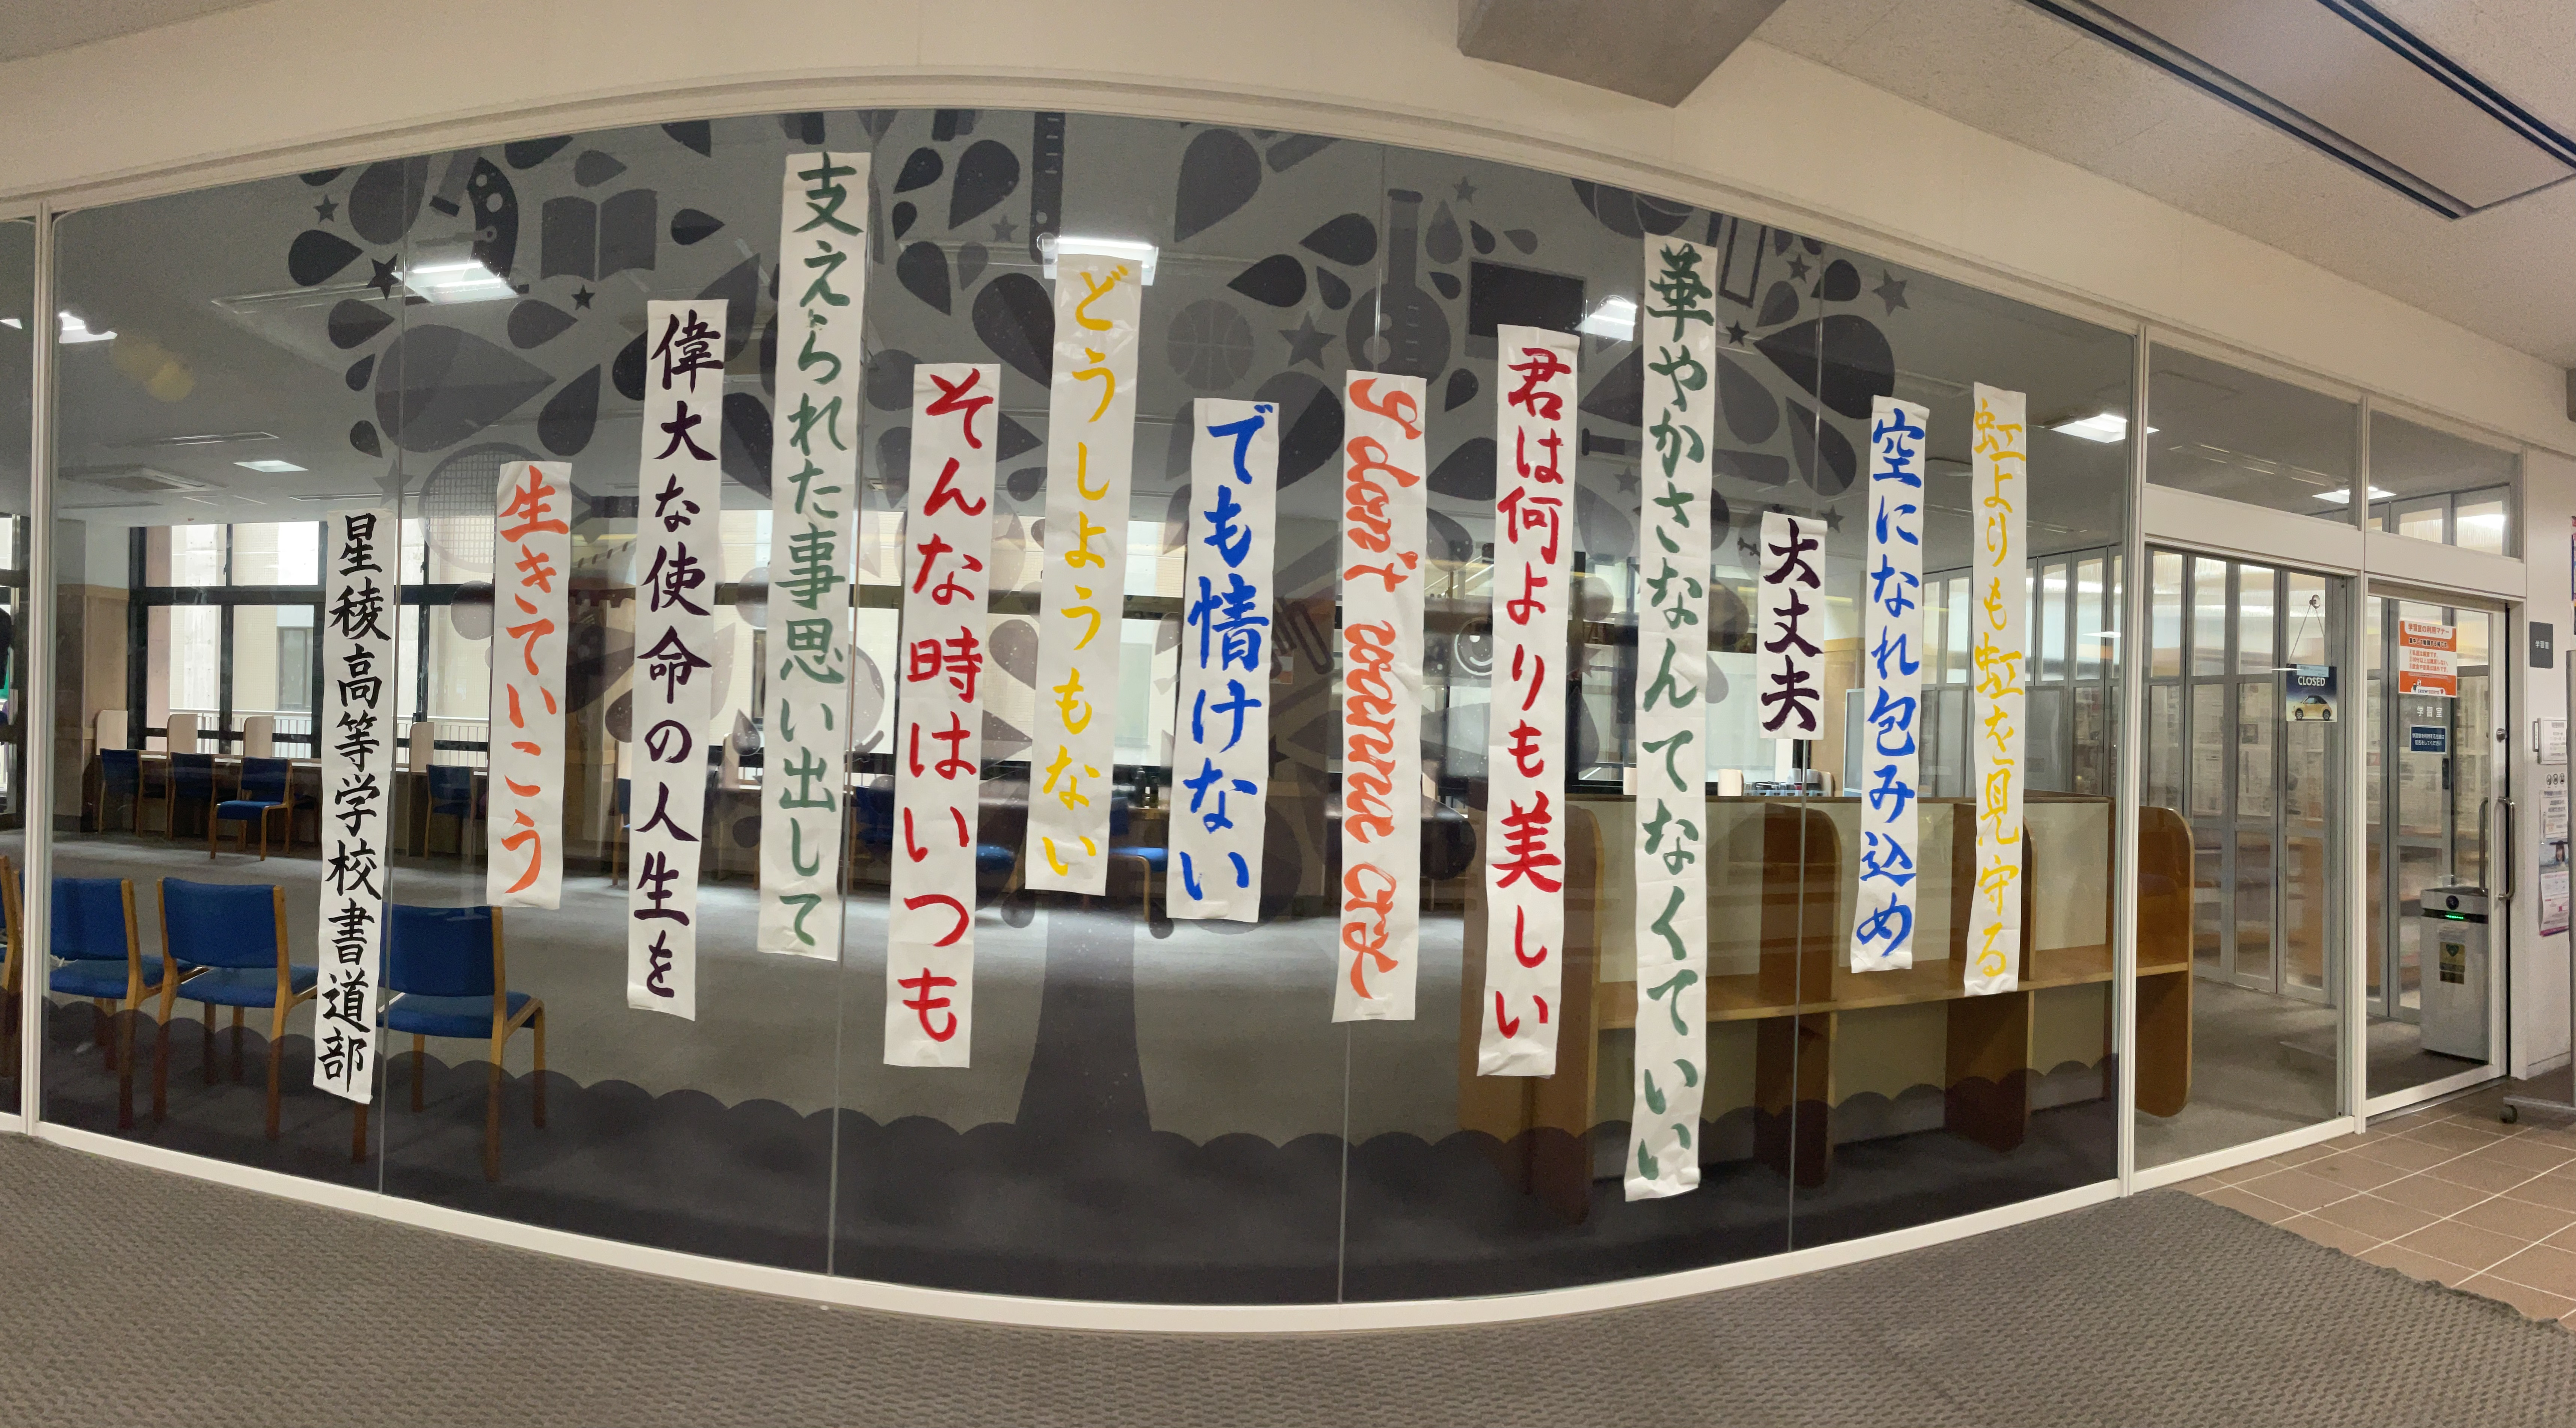 虹よりも虹を見守る
空になれ包み込め
大丈夫
華やかさなんてなくていい
君は何よりも美しい
I don't wanna cry
でも情けない
どうしようもない
そんな時はいつも
支えられた事思い出して
偉大な使命の人生を
生きていこう
星稜高等学校書道部
CLOSED
学習室の利用マナー
学習室
学習室